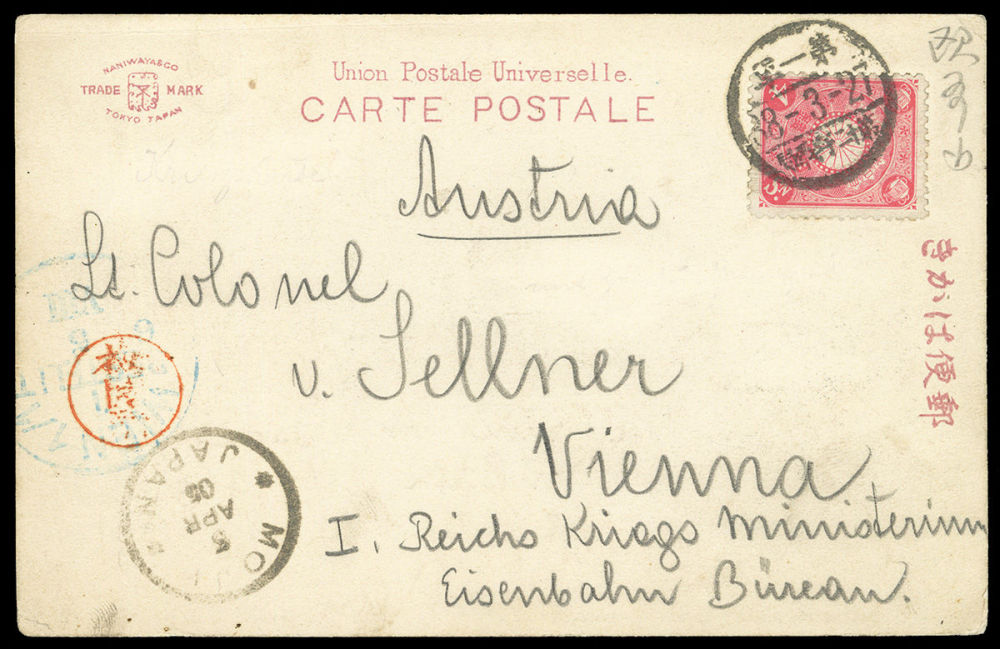 NANIWAYA & CO
TRADE MARK
TOKYO JAPAN
Union Postale Universelle.
CARTE POSTALE
Austria
Lt. Colonel
v. Sellner
Vienna
I. Reichs Kriegs Ministerium
Eisenbahn Büreau.
郵便はがき
38-3-27
MOJI
5
APR
05
JAPAN